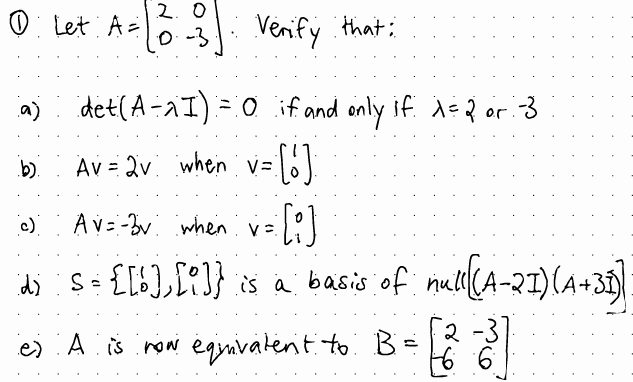 ① Let A = [2 0; 0 -3]. Verify that:
a) det(A-λI) = 0 if and only if λ=2 or -3
b) Av = 2v when v = [1; 0]
c) Av = -3v when v = [0; 1]
d) S = {[1; 0], [0; 1]} is a basis of null[(A-2I)(A+3I)]
e) A is row equivalent to B = [2 -3; -6 6]